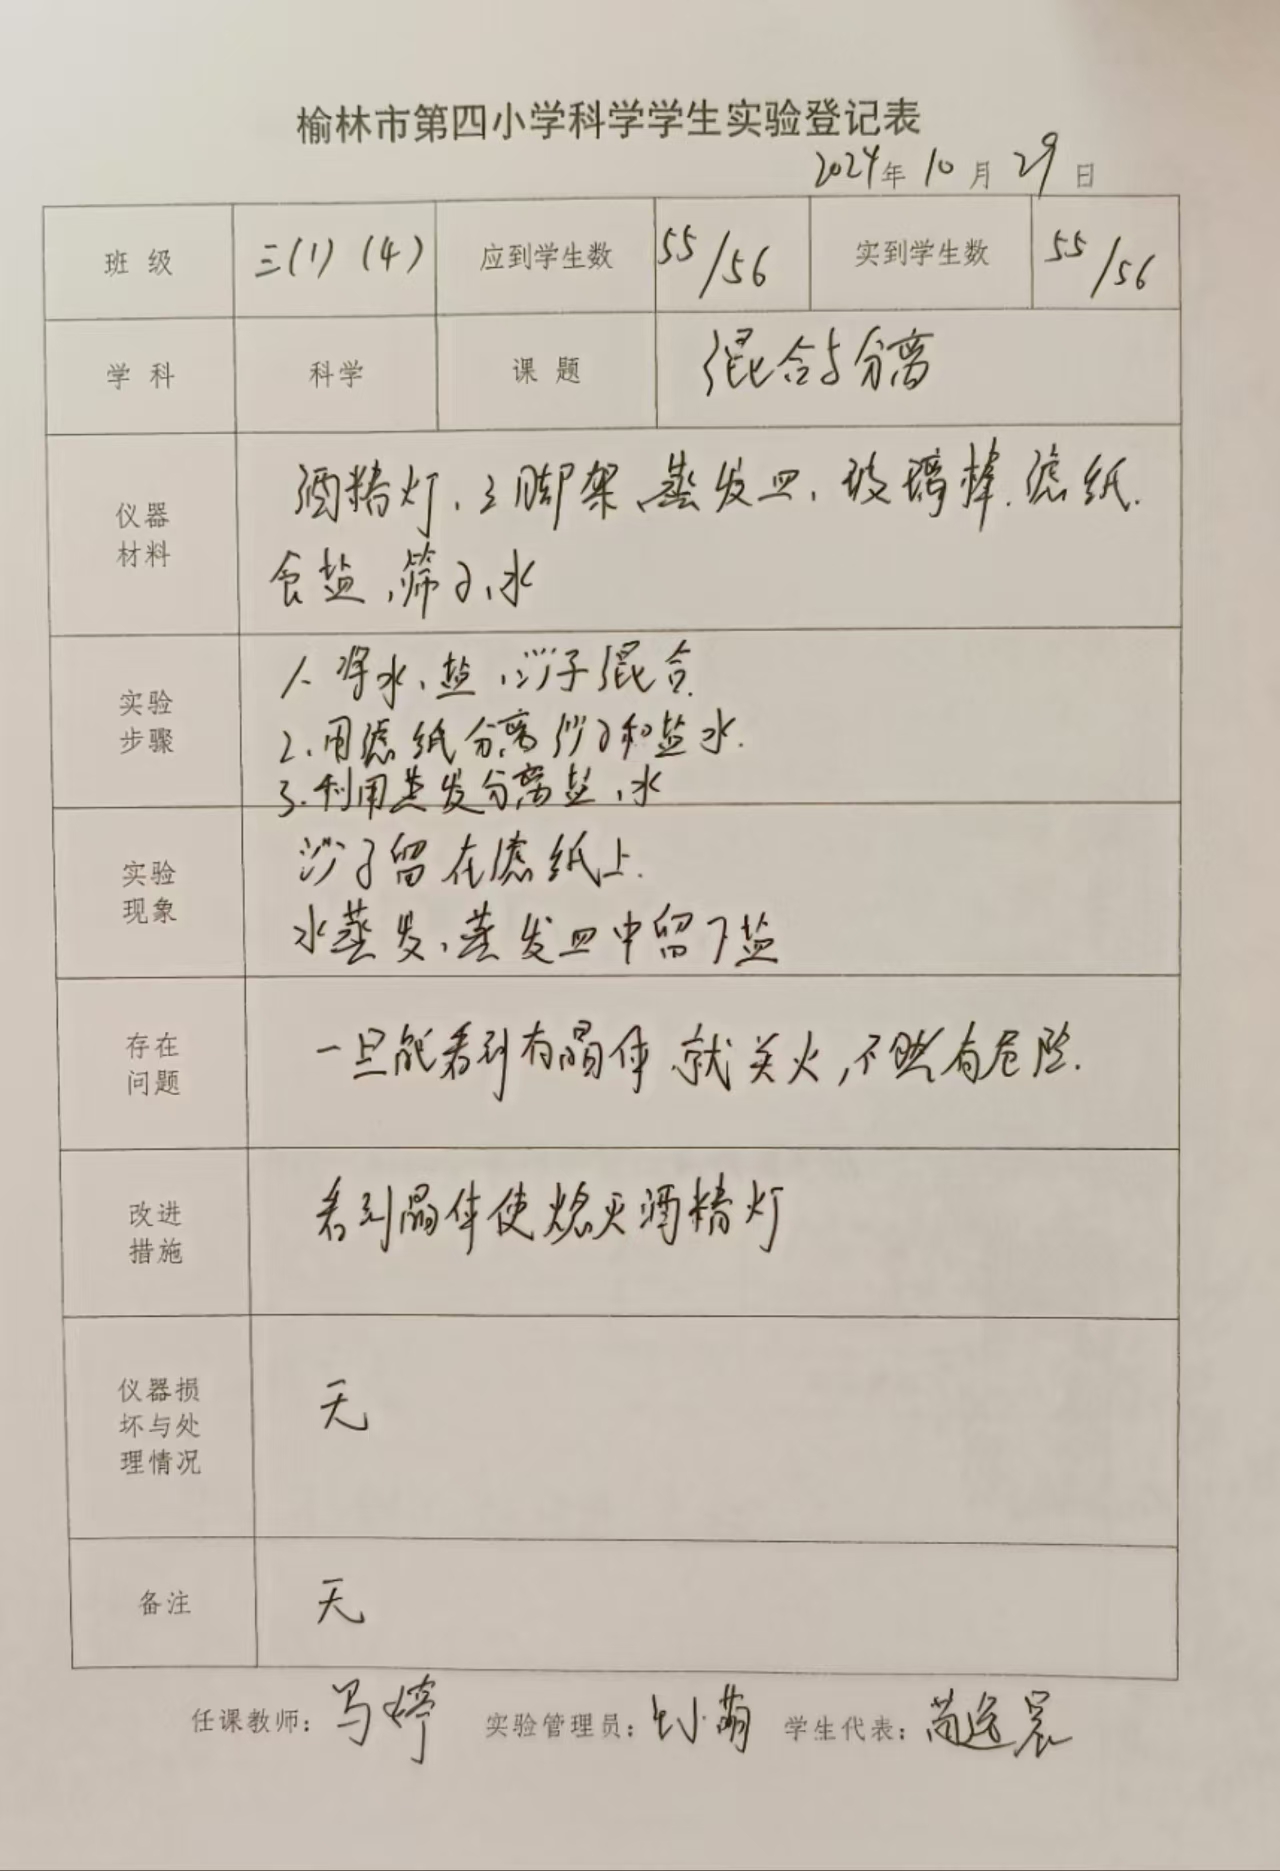 榆林市第四小学科学学生实验登记表
2024年 10 月 29 日
班 级 三(1) (4) 应到学生数 55/56 实到学生数 55/56
学 科 科学 课 题 混合与分离
仪器
材料
酒精灯、三脚架、蒸发皿、玻璃棒、滤纸、
食盐、筛子、水
实验
步骤
1、将水、盐、沙子混合.
2.用滤纸分离沙子和盐水.
3.利用蒸发分离盐、水
实验
现象
沙子留在滤纸上.
水蒸发、蒸发皿中留下盐
存在
问题
一旦能看到有晶体就关火,不然有危险.
改进
措施
看到晶体使熄灭酒精灯
仪器损
坏与处
理情况
无
备注
无
任课教师: 马婷 实验管理员: 刘萌 学生代表: